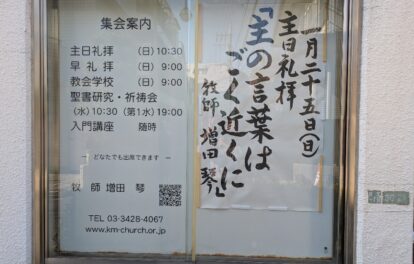 集会案内
主日礼拝 (日) 10:30
早礼拝 (日) 9:00
教会学校 (日) 9:00
聖書研究・祈祷会
(水) 10:30 (第1水) 19:00
入門講座 随時
― どなたでも出席できます ―
牧師 増田 琴
TEL 03-3428-4067
www.km-church.or.jp
一月二十五日(日)
主日礼拝
「主の言葉は
ごく近くに」
牧師 増田琴